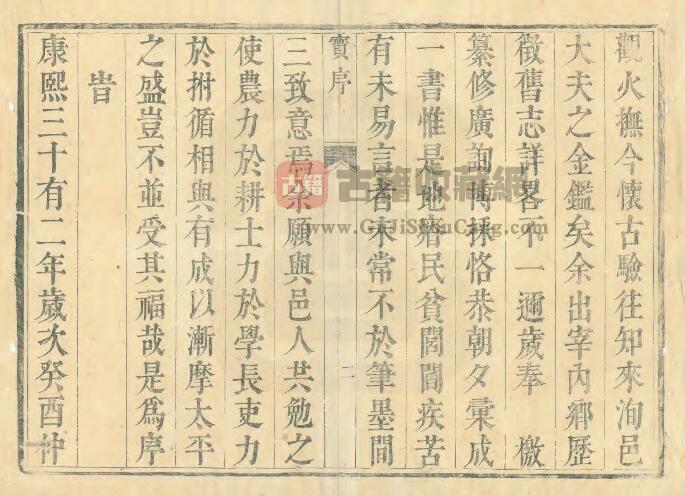 觀火撫今懷古驗往知來洵邑
大夫之金鑑矣余出宰內鄉歷
徵舊志詳畧不一邇歲奉 檄
纂修廣詢博採恪恭朝夕彙成
一書惟是地瘠民貧閭閻疾苦
有未易言者未常不於筆墨間
寳序
二
三致意焉余願與邑人共勉之
使農力於耕士力於學長吏力
於拊循相與有成以漸摩太平
之盛豈不並受其福哉是爲序
旹
康熙三十有二年歲次癸酉仲
古籍 古籍收藏網
www.GuJiShouCang.com